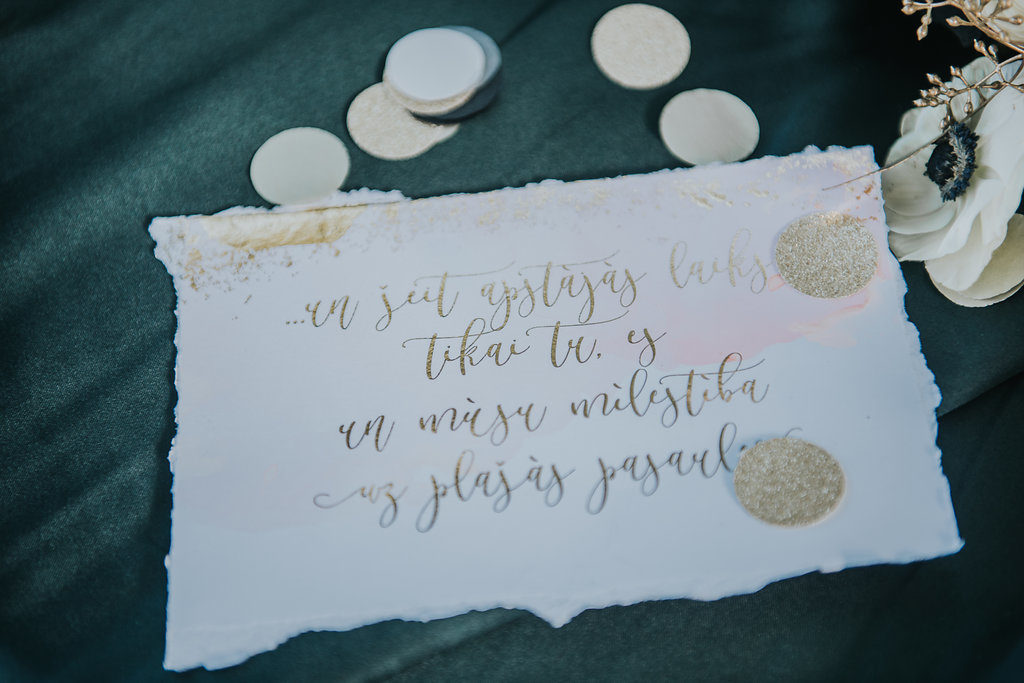 ...un šeit apstàjàs laiks
tikai tu, es
un mùsu mìlestìba
uz plašàs pasaul